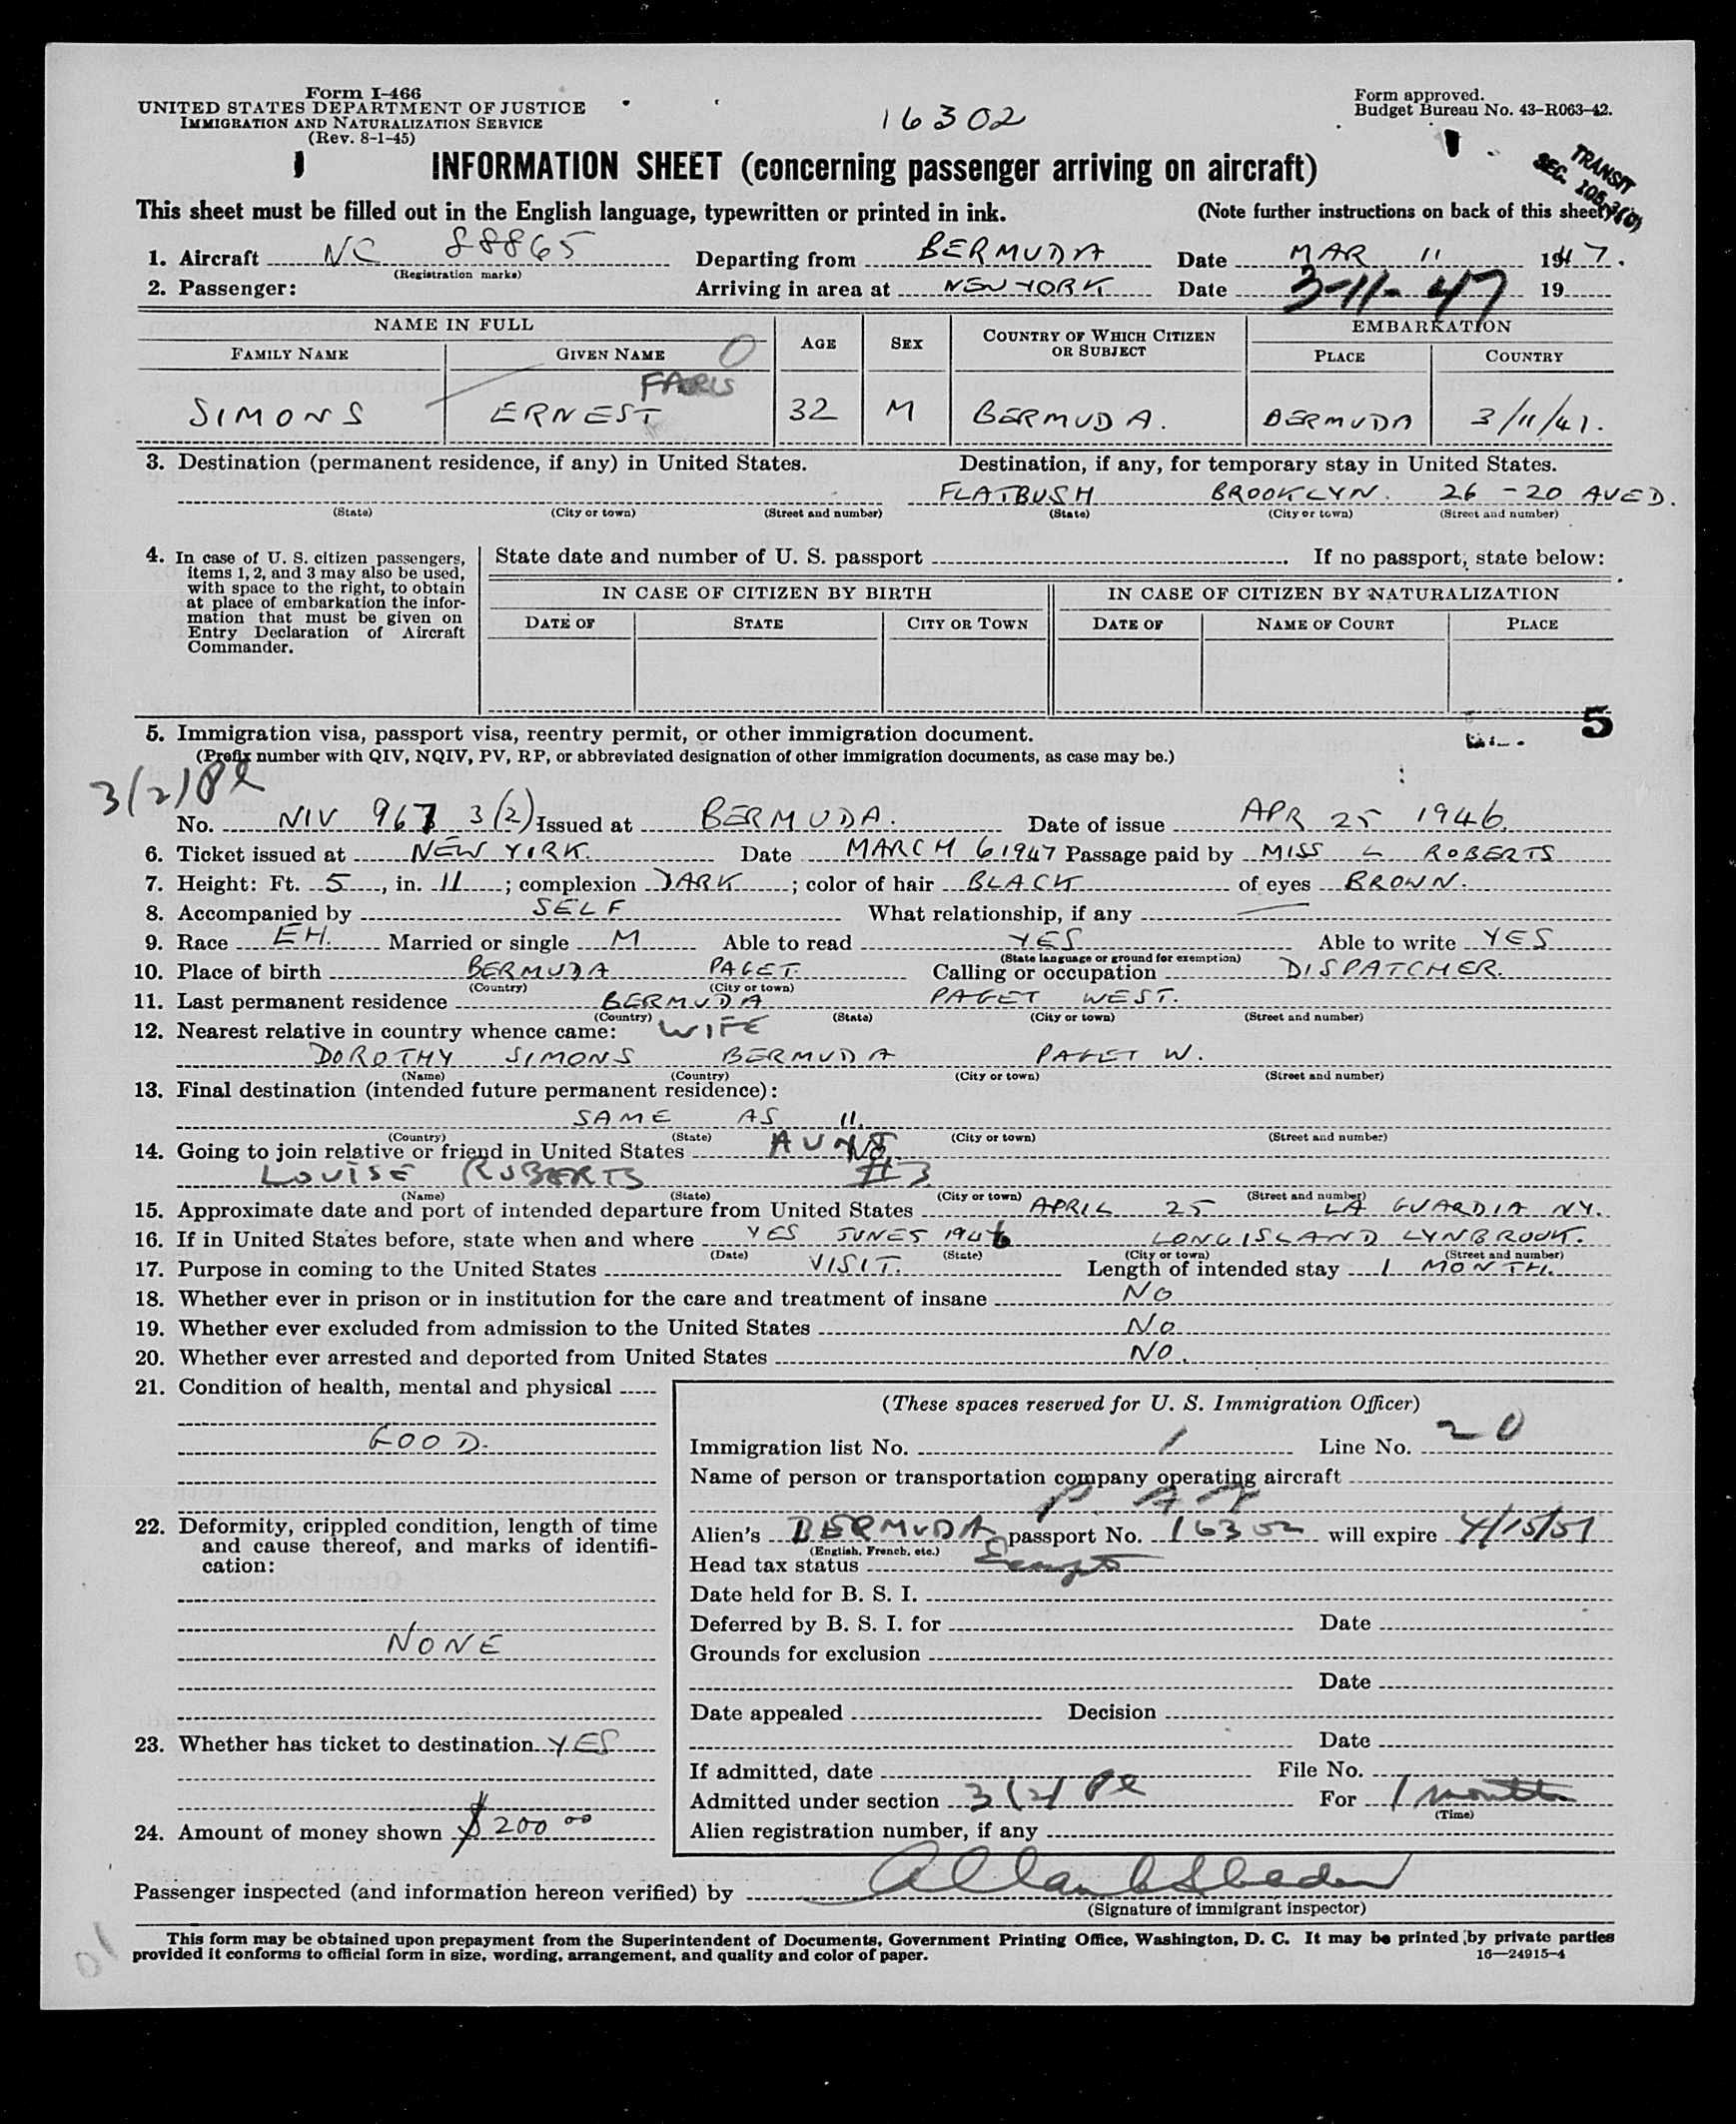 Form I-466
UNITED STATES DEPARTMENT OF JUSTICE
IMMIGRATION AND NATURALIZATION SERVICE
(Rev. 8-1-45)
16302
Form approved.
Budget Bureau No. 43-R063-42.
INFORMATION SHEET (concerning passenger arriving on aircraft)
TRANSIT
This sheet must be filled out in the English language, typewritten or printed in ink. (Note further instructions on back of this sheet.)
1. Aircraft NC 88865 Departing from BERMUDA Date MAR 11 1947.
(Registration marks)
2. Passenger: Arriving in area at NEW YORK Date 3-11-47 19
NAME IN FULL AGE SEX COUNTRY OF WHICH CITIZEN OR SUBJECT EMBARKATION
FAMILY NAME GIVEN NAME PLACE COUNTRY
SIMONS ERNEST 32 M BERMUDA. BERMUDA 3/11/47.
3. Destination (permanent residence, if any) in United States. Destination, if any, for temporary stay in United States.
FLATBUSH BROOKLYN. 26-20 AVE D.
(State) (City or town) (Street and number) (State) (City or town) (Street and number)
4. In case of U. S. citizen passengers, items 1, 2, and 3 may also be used, with space to the right, to obtain at place of embarkation the information that must be given on Entry Declaration of Aircraft Commander.
State date and number of U. S. passport . If no passport, state below:
IN CASE OF CITIZEN BY BIRTH IN CASE OF CITIZEN BY NATURALIZATION
DATE OF STATE CITY OR TOWN DATE OF NAME OF COURT PLACE
5
5. Immigration visa, passport visa, reentry permit, or other immigration document.
(Prefix number with QIV, NQIV, PV, RP, or abbreviated designation of other immigration documents, as case may be.)
3(2) Pl
No. NIV 967 3(2) Issued at BERMUDA. Date of issue APR 25 1946.
6. Ticket issued at NEW YIRK. Date MARCH 6 1947 Passage paid by MISS L ROBERTS
7. Height: Ft. 5, in. 11; complexion DARK; color of hair BLACK of eyes BROWN.
8. Accompanied by SELF What relationship, if any —
9. Race EH. Married or single M Able to read YES Able to write YES
(State language or ground for exemption)
10. Place of birth BERMUDA PAGET. Calling or occupation DISPATCHER.
(Country) (City or town)
11. Last permanent residence BERMUDA PAGET WEST.
(Country) (State) (City or town) (Street and number)
12. Nearest relative in country whence came: WIFE
DOROTHY SIMONS BERMUDA PAGET W.
(Name) (Country) (City or town) (Street and number)
13. Final destination (intended future permanent residence):
SAME AS 11.
(Country) (State) (City or town) (Street and number)
14. Going to join relative or friend in United States AUNT
LOUISE ROBERTS #3
(Name) (State) (City or town) (Street and number)
15. Approximate date and port of intended departure from United States APRIL 25 LA GUARDIA NY.
16. If in United States before, state when and where YES JUNE 5 1946 LONG ISLAND LYNBROOK.
(Date) (State) (City or town) (Street and number)
17. Purpose in coming to the United States VISIT. Length of intended stay 1 MONTH.
18. Whether ever in prison or in institution for the care and treatment of insane NO
19. Whether ever excluded from admission to the United States NO
20. Whether ever arrested and deported from United States NO.
21. Condition of health, mental and physical
GOOD.
22. Deformity, crippled condition, length of time and cause thereof, and marks of identification:
NONE
23. Whether has ticket to destination YES
24. Amount of money shown $200 00
(These spaces reserved for U. S. Immigration Officer)
Immigration list No. 1 Line No. 20
Name of person or transportation company operating aircraft
Alien's BERMUDA passport No. 16302 will expire 4/15/51
(English, French, etc.)
Head tax status Exempt
Date held for B. S. I.
Deferred by B. S. I. for Date
Grounds for exclusion
Date
Date appealed Decision
Date
If admitted, date File No.
Admitted under section 3(2) Pl For 1 month
(Time)
Alien registration number, if any
Passenger inspected (and information hereon verified) by
(Signature of immigrant inspector)
This form may be obtained upon prepayment from the Superintendent of Documents, Government Printing Office, Washington, D. C. It may be printed by private parties
provided it conforms to official form in size, wording, arrangement, and quality and color of paper. 16—24915-4